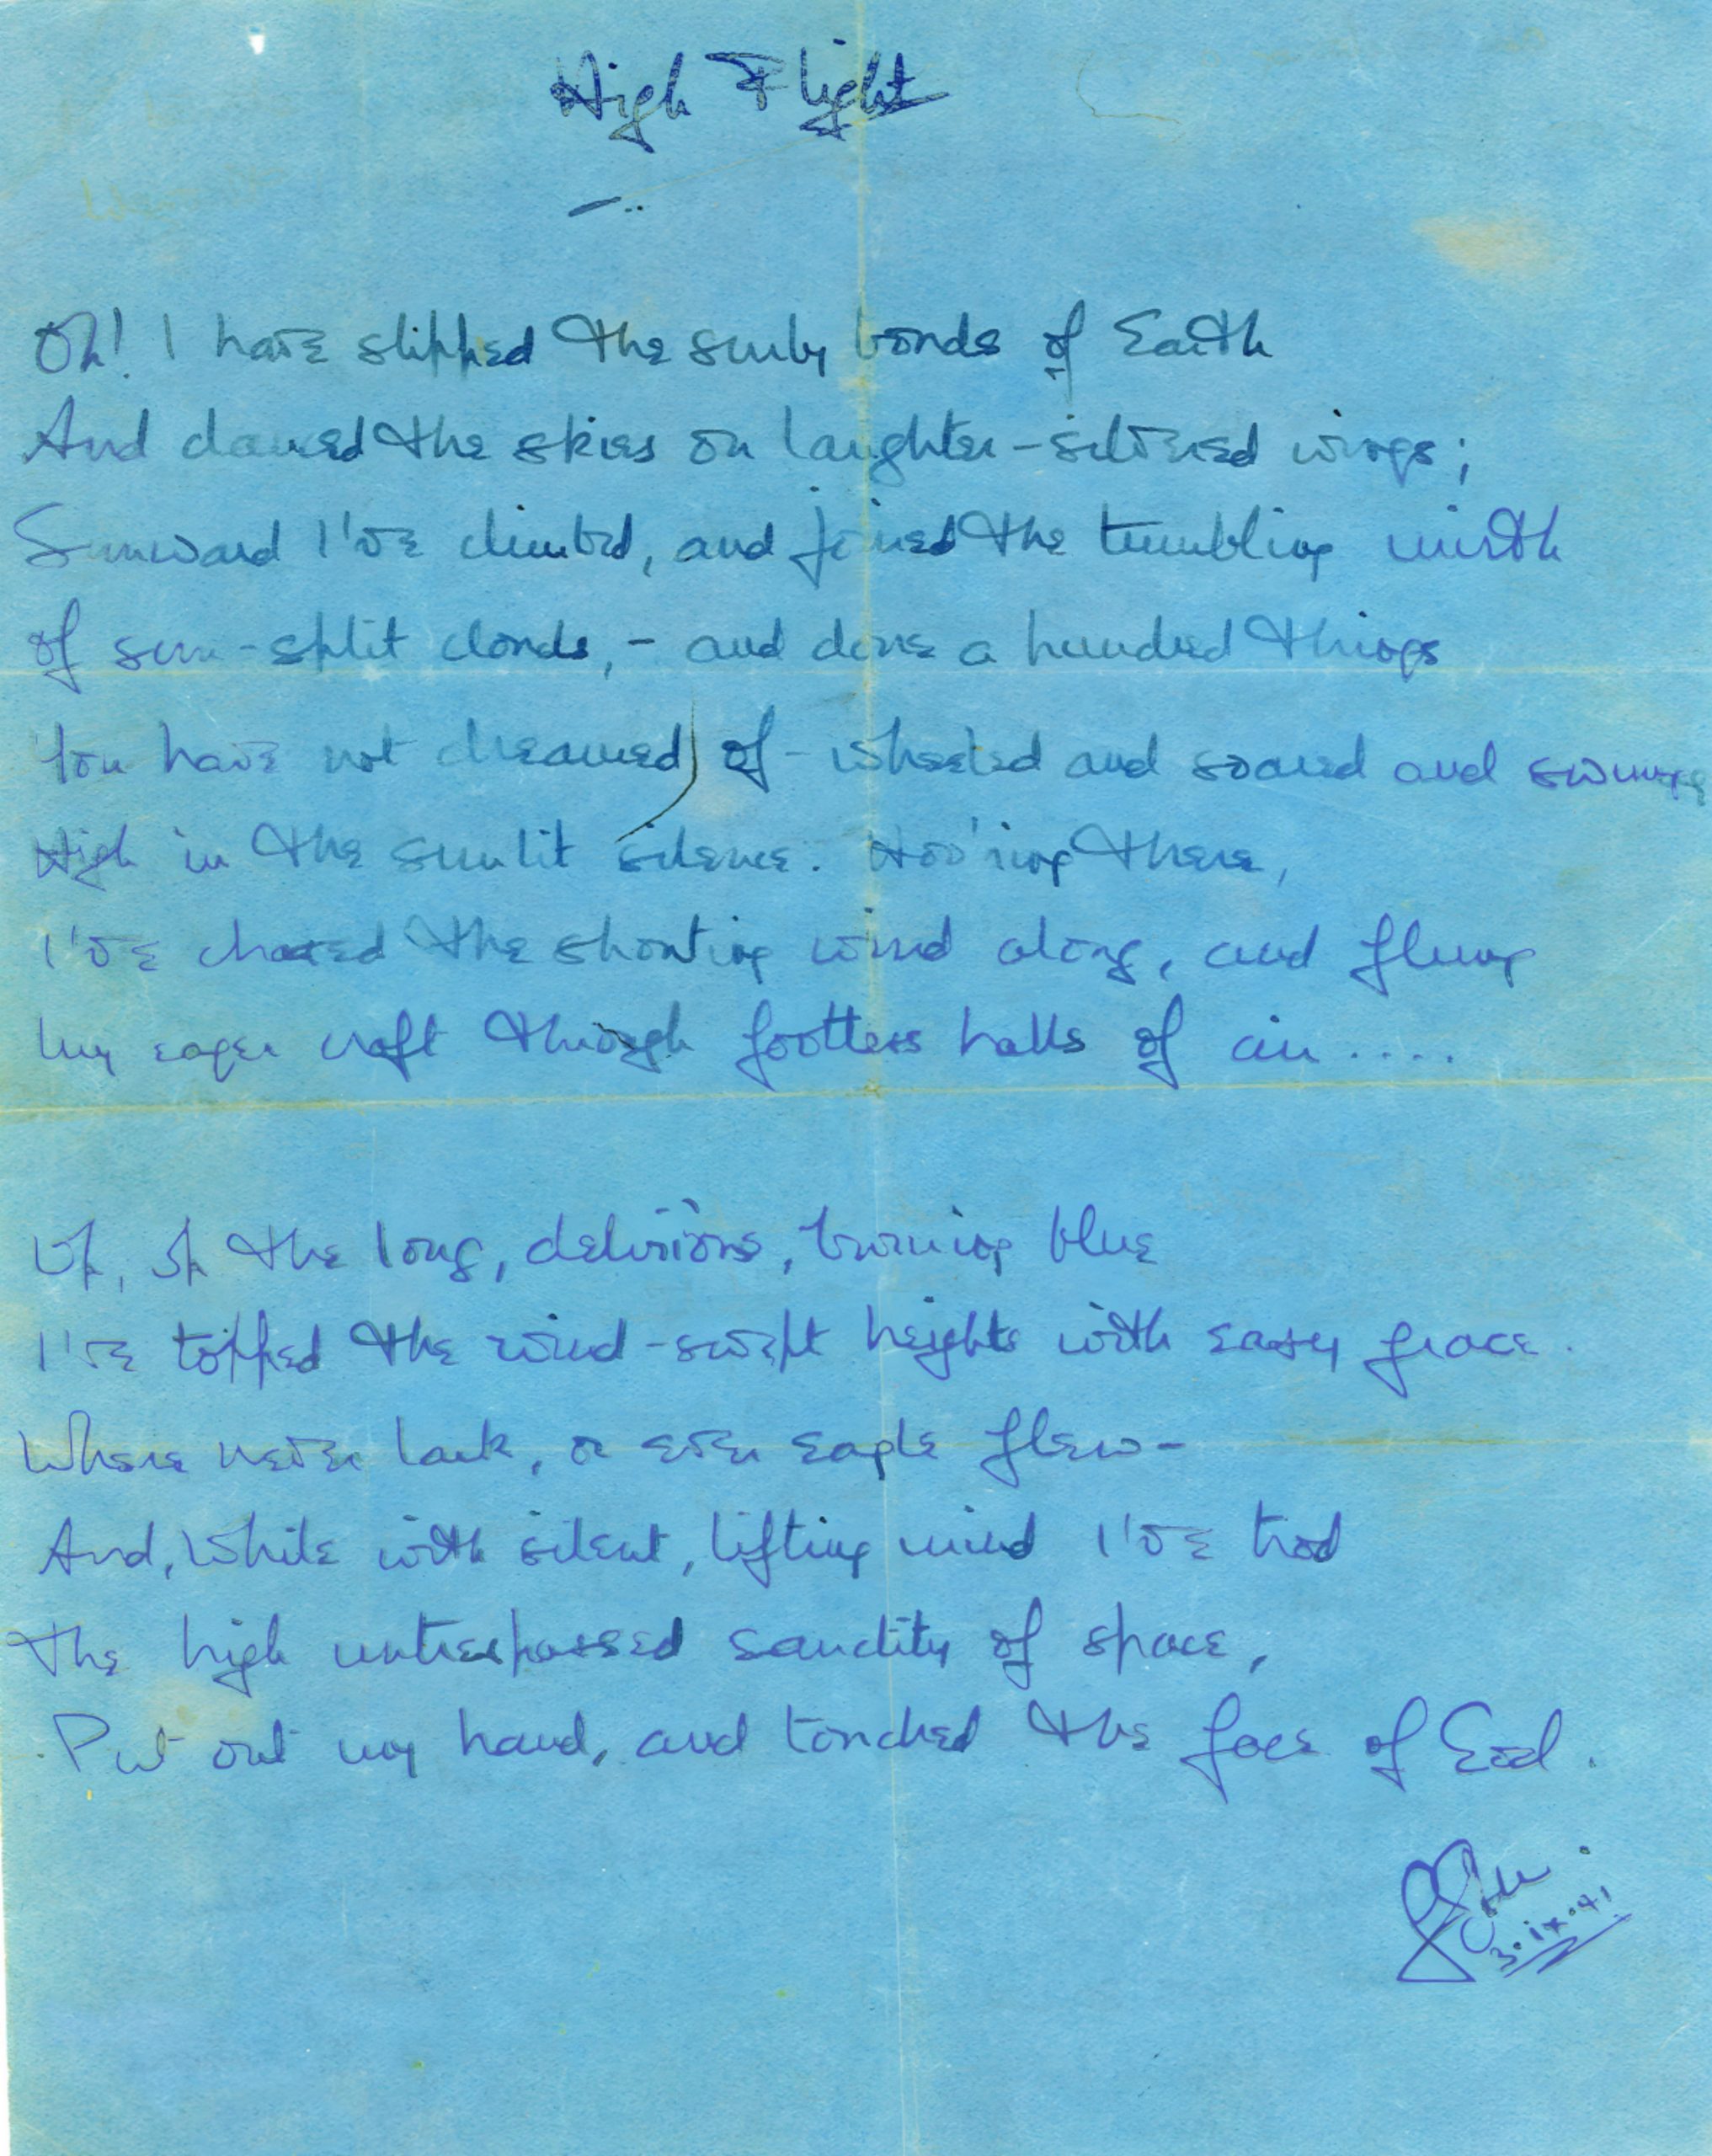 High Flight
Oh! I have slipped the surly bonds of Earth
And danced the skies on laughter-silvered wings;
Sunward I've climbed, and joined the tumbling mirth
of sun-split clouds, - and done a hundred things
You have not dreamed of - wheeled and soared and swung
High in the sunlit silence. Hov'ring there,
I've chased the shouting wind along, and flung
My eager craft through footless halls of air.....
Up, up the long, delirious, burning blue
I've topped the wind-swept heights with easy grace.
Where never lark, or ever eagle flew-
And, while with silent, lifting mind I've trod
The high untrespassed sanctity of space,
Put out my hand, and touched the face of God.
3.ix.41